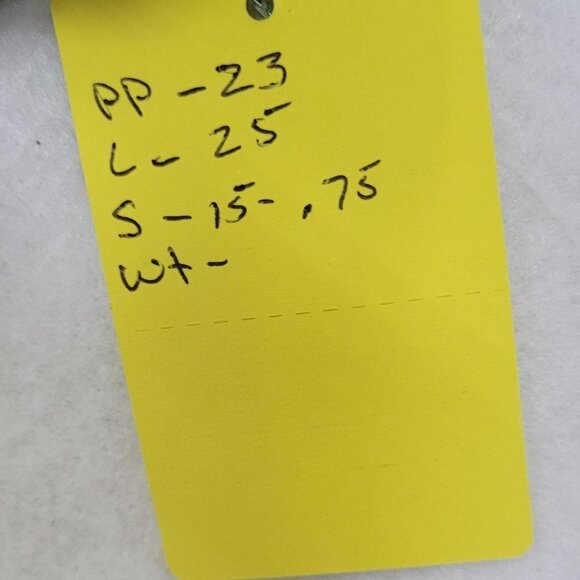 PP - 23
L - 25
S - 15 - .75
Wt -